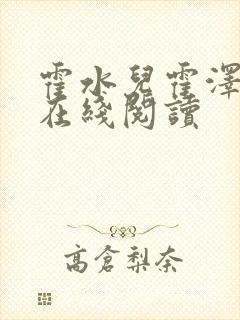 霍水兒霍澤
在綫閱讀
高倉梨奈